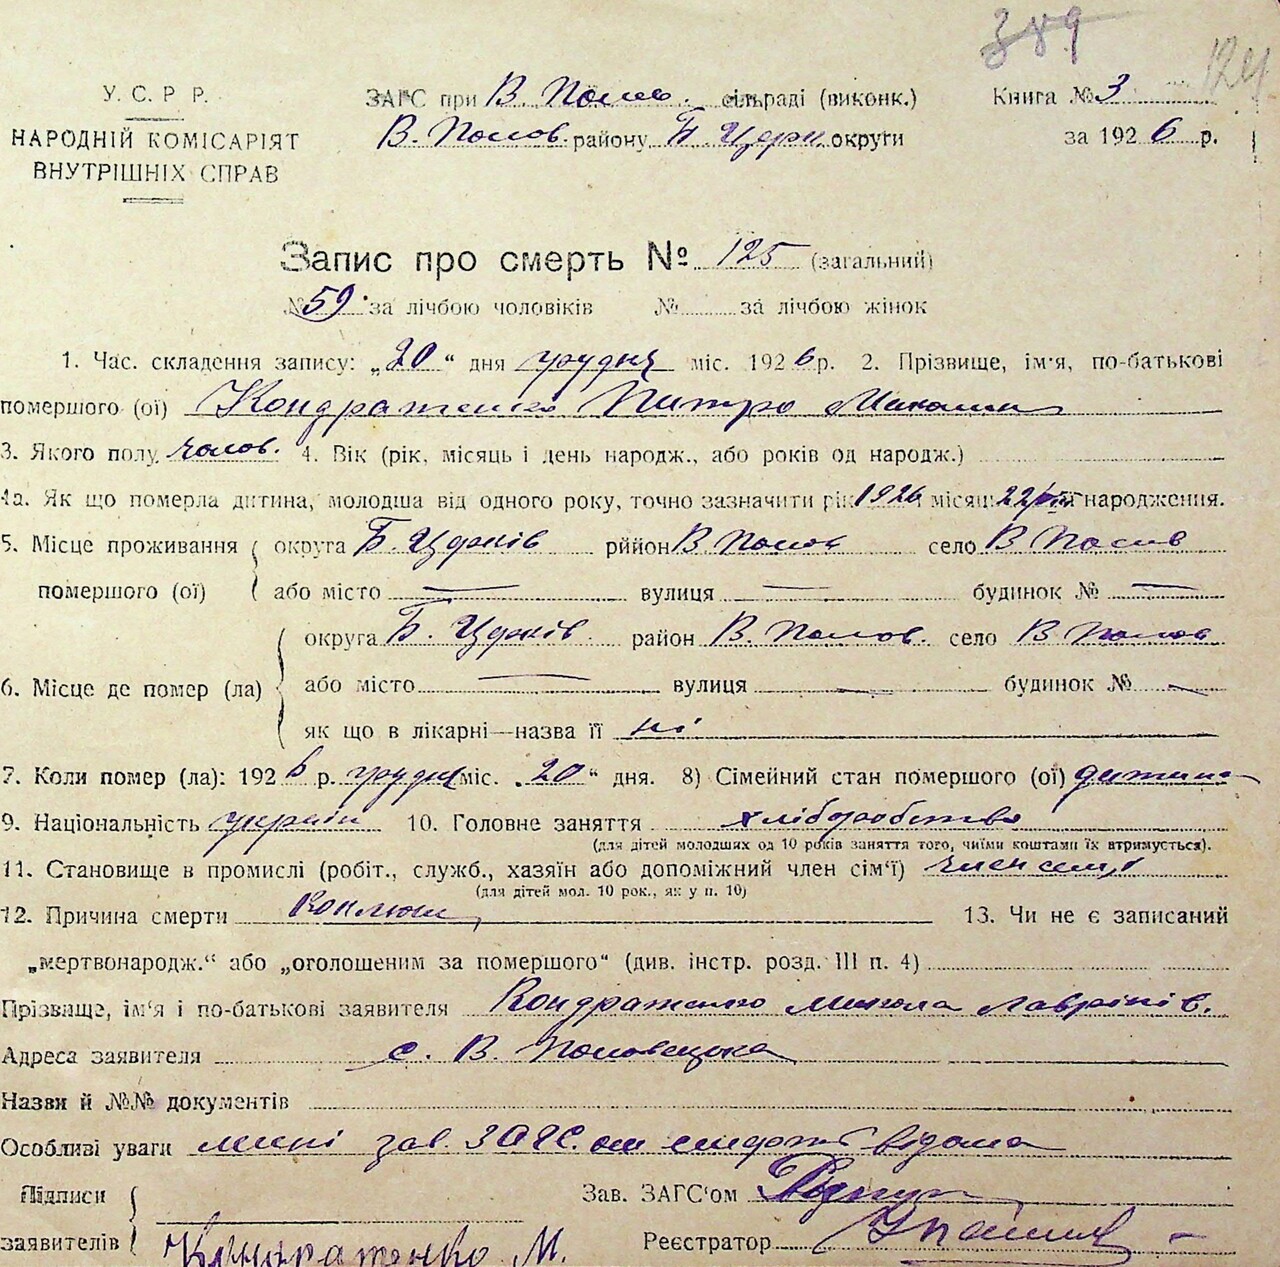 389
124
У. С. Р Р.
НАРОДНІЙ КОМІСАРІЯТ
ВНУТРІШНІХ СПРАВ
ЗАГС при В. Полов. сільраді (виконк.)
В. Полов. району Б Церк. округи
Книга № 3
за 1926 р.
Запис про смерть № 125 (загальний)
№ 59 за лічбою чоловіків № за лічбою жінок
1. Час. складення запису: „20“ дня грудня міс. 1926 р. 2. Прізвище, ім'я, по-батькові
помершого (ої) Кондратенко Питро Микол
3. Якого полу чолов. 4. Вік (рік, місяць і день народж., або років од народж.)
4а. Як що померла дитина, молодша від одного року, точно зазначити рік 1926 місяц 22 народження.
5. Місце проживання округа Б. Церків рййон В Полов село В Полов
помершого (ої) або місто — вулиця — будинок № —
округа Б. Церків район В. Полов. село В Полов
6. Місце де помер (ла) або місто — вулиця — будинок № —
як що в лікарні—назва її ні
7. Коли помер (ла): 1926 р. грудня міс. „20“ дня. 8) Сімейний стан помершого (ої) дитина
9. Національність україн 10. Головне заняття хліборобство
(для дітей молодших од 10 років заняття того, чиїми коштами їх втримується).
11. Становище в промислі (робіт., служб., хазяїн або допоміжний член сім'ї) член семї
(для дітей мол. 10 рок., як у п. 10)
12. Причина смерти Коклюш 13. Чи не є записаний
„мертвонародж.“ або „оголошеним за помершого“ (див. інстр. розд. III п. 4)
Прізвище, ім'я і по-батькові заявителя Кондратенко Микола Лаврінів.
Адреса заявителя с. В. Половецька
Назви й №№ документів
Особливі уваги мині зав. ЗАГС. ом смерть відома
Підписи
заявителів Кондратенко М.
Зав. ЗАГС'ом
Реєстратор